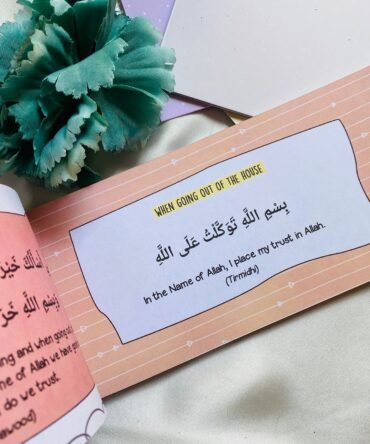 WHEN GOING OUT OF THE HOUSE
بِسْمِ اللَّهِ تَوَكَّلْتُ عَلَى اللَّهِ
In the Name of Allah, I place my trust in Allah.
(Tirmidhi)
خَيْرَ
اللَّهِ
and when going
of Allah we have
do we trust.